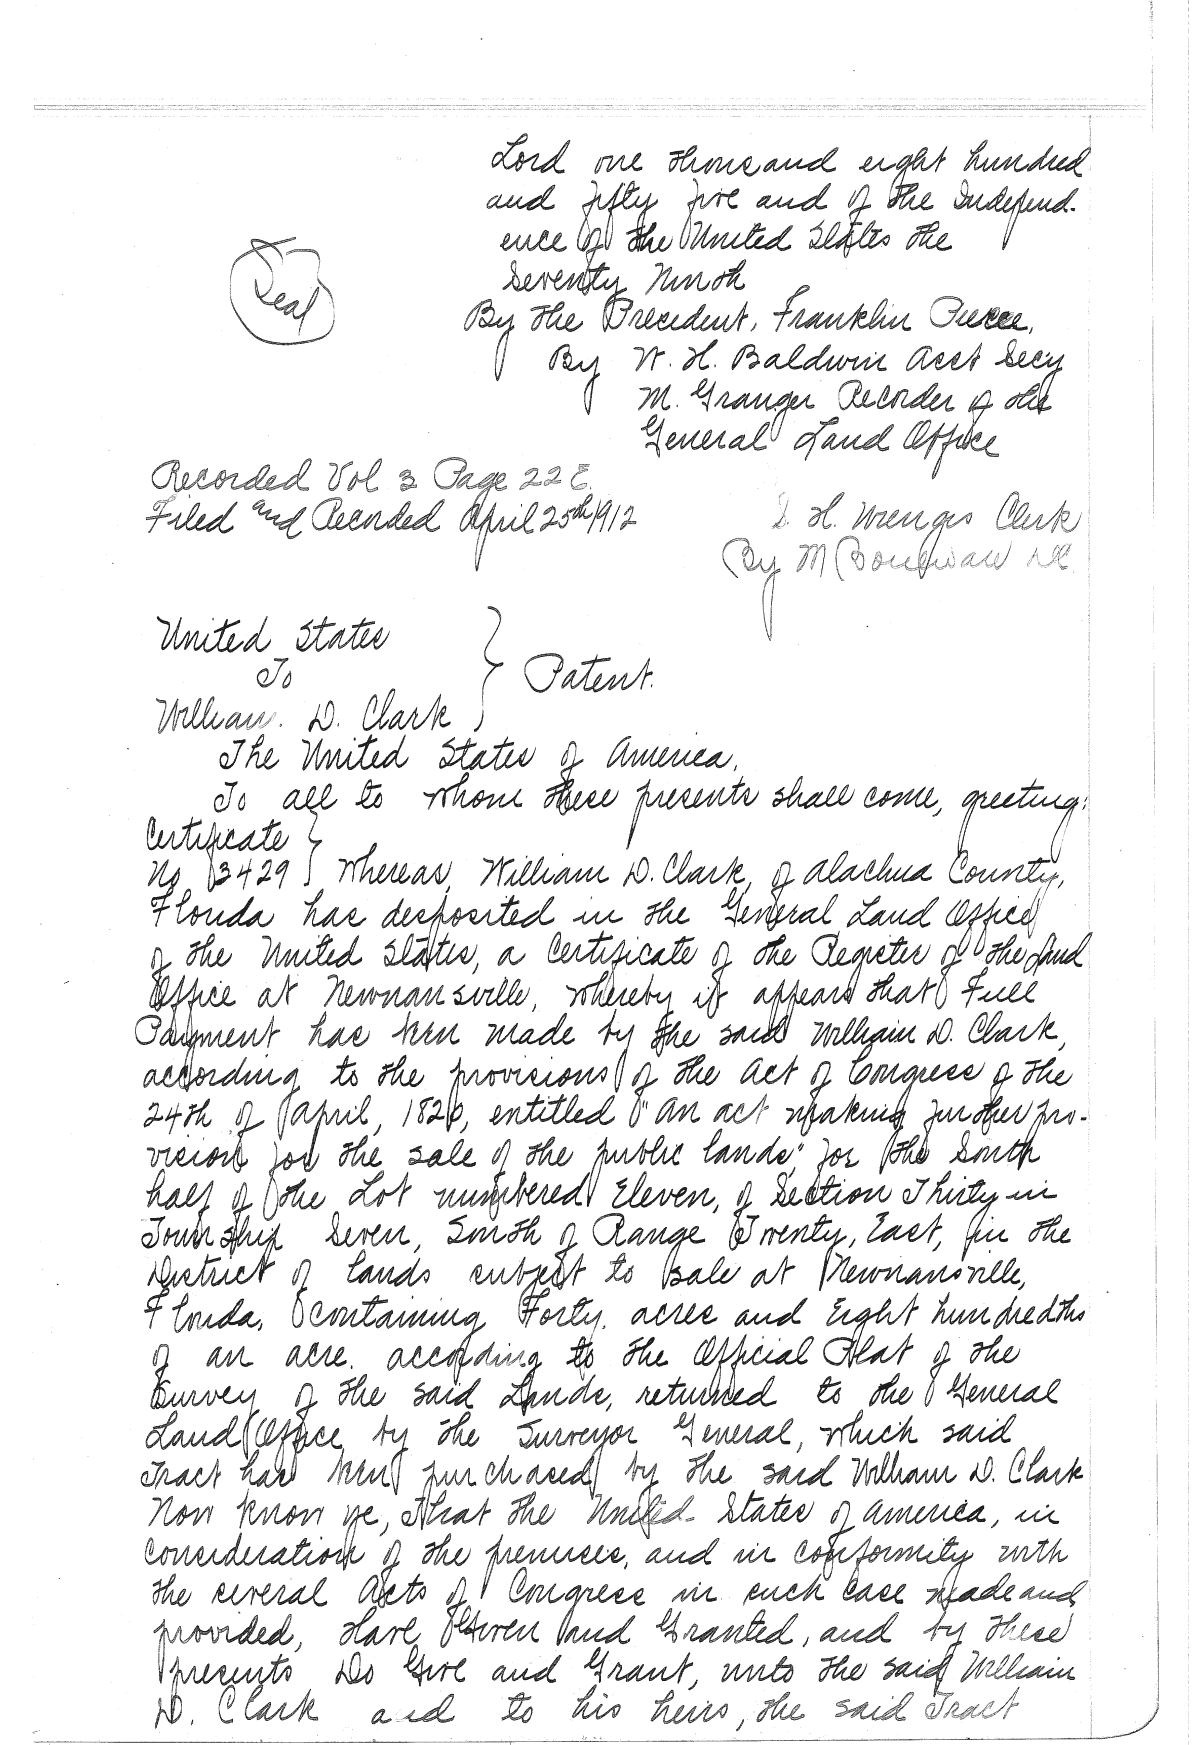 Lord one thousand eight hundred
and fifty five and of the Independ-
ence of the United States the
Seventy Ninth
Seal
By the President, Franklin Pierce,
By W. H. Baldwin Asst Secy
M. Granger Recorder of the
General Land Office
Recorded Vol 3 Page 22
Filed and Recorded April 25th 1912
H. Wienges Clerk
By M DC
United States
To
William. D. Clark
} Patent.
The United States of America,
To all to whom these presents shall come, greeting:
Certificate }
No 3429 } Whereas, William D. Clark, of Alachua County,
Florida has deposited in the General Land Office
of the United States, a Certificate of the Register of the Land
Office at Newnansville, whereby it appears that Full
Payment has been made by the said William D. Clark,
according to the provisions of the Act of Congress of the
24th of April, 1820, entitled "An act making further pro-
vision for the sale of the public lands," for the South
half of the Lot numbered Eleven, of Section Thirty in
Township Seven, South of Range Twenty, East, in the
District of lands subject to sale at Newnansville,
Florida, containing Forty. acres and Eight hundredths
of an acre. according to the Official Plat of the
Survey of the said Lands, returned to the General
Land Office by the Surveyor General, which said
Tract has been purchased by the said William D. Clark
Now Know ye, That the United States of America, in
consideration of the premises, and in conformity with
the several Acts of Congress in such case made and
provided, Have Given and Granted, and by these
presents Do Give and Grant, unto the said William
D. Clark and to his heirs, the said Tract